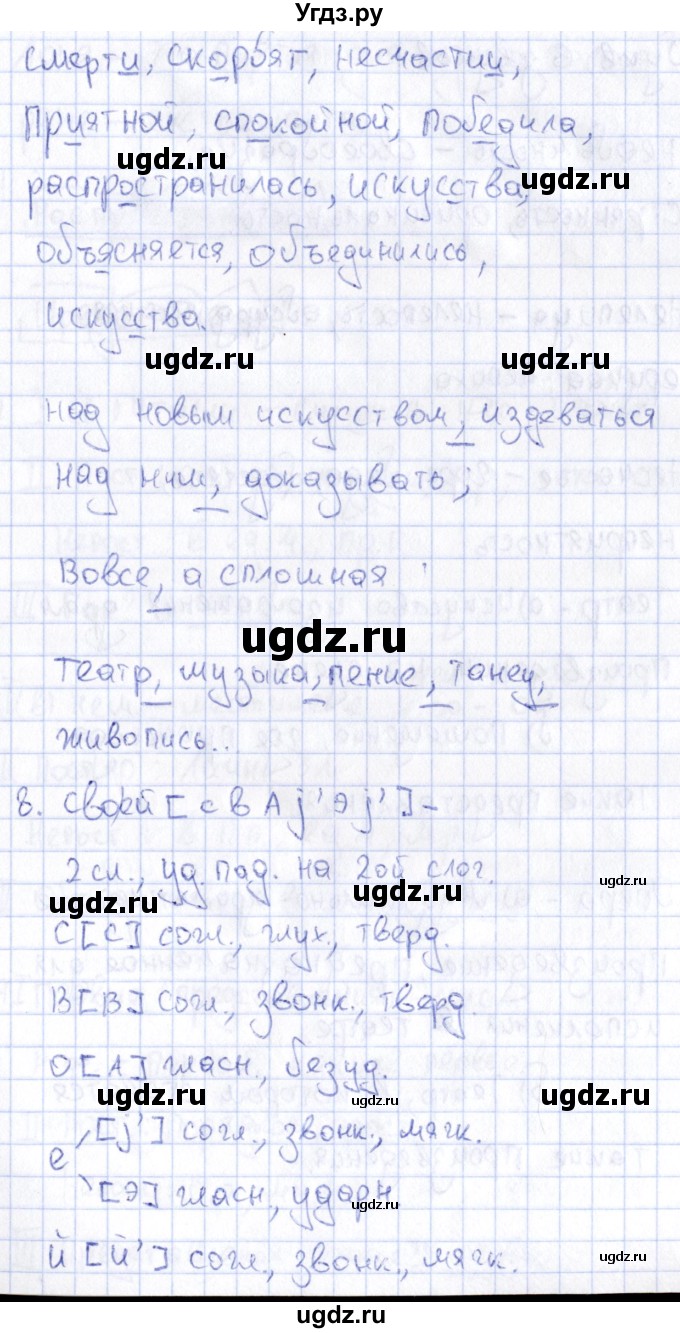 Угдз.ру
смерти, скорбят, несчастии,
Приятной, спокойной, победила,
ugdz.ru ugdz.ru
распространилась, искусства,
объясняется, объединились,
искусства.
ugdz.ru ugdz.ru
над новым искусством, издеваться
над ним, доказывать;
Вовсе, а сплошная
ugdz.ru
Театр, музыка, пение, танец,
живопись..
8. Своей [с в А j' Э j'] -
2 сл., уд. пад. на 2ой слог.
ugdz.ru ugdz.ru ugdz.ru
С [С] согл., глух., тверд.
В [В] согл., звонк., тверд.
О [А] гласн., безуд.
ugdz.ru ugdz.ru
е [j'] согл., звонк., мягк.
[Э] гласн, ударн
ugdz.ru ugdz.ru
Й [Й'] согл., звонк., мягк.
ugdz.ru